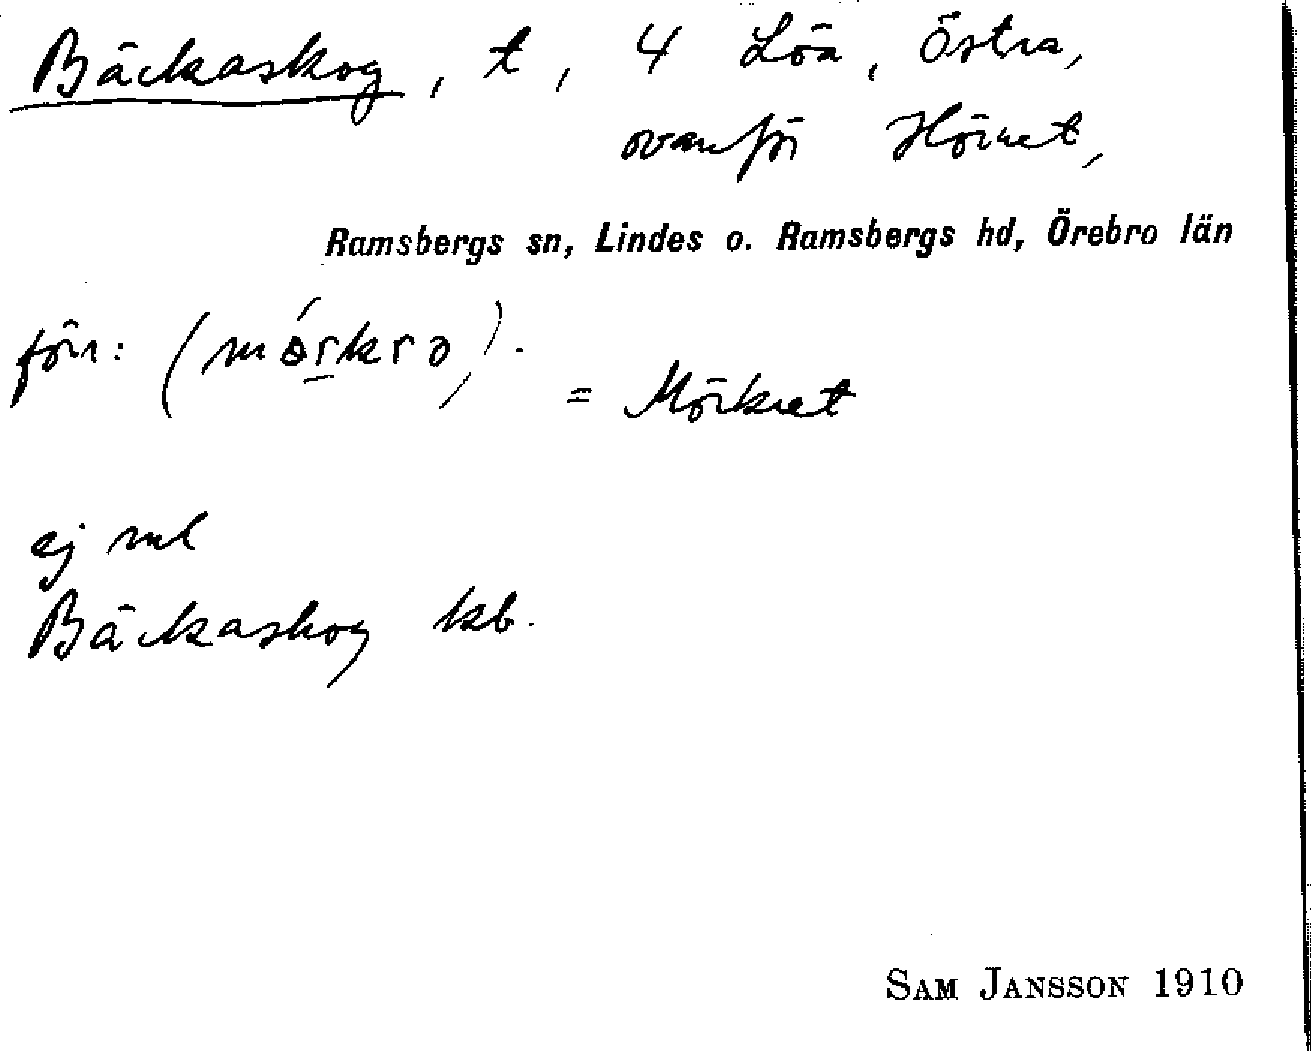 Bäckaskog, t, 4 Löa, Östra,
ovanför Hörnet,
Ramsbergs sn, Lindes o. Ramsbergs hd, Örebro län
förr: (mórkrə).
= Mörkret
ej ml
Bäckaskog kb.
SAM JANSSON 1910